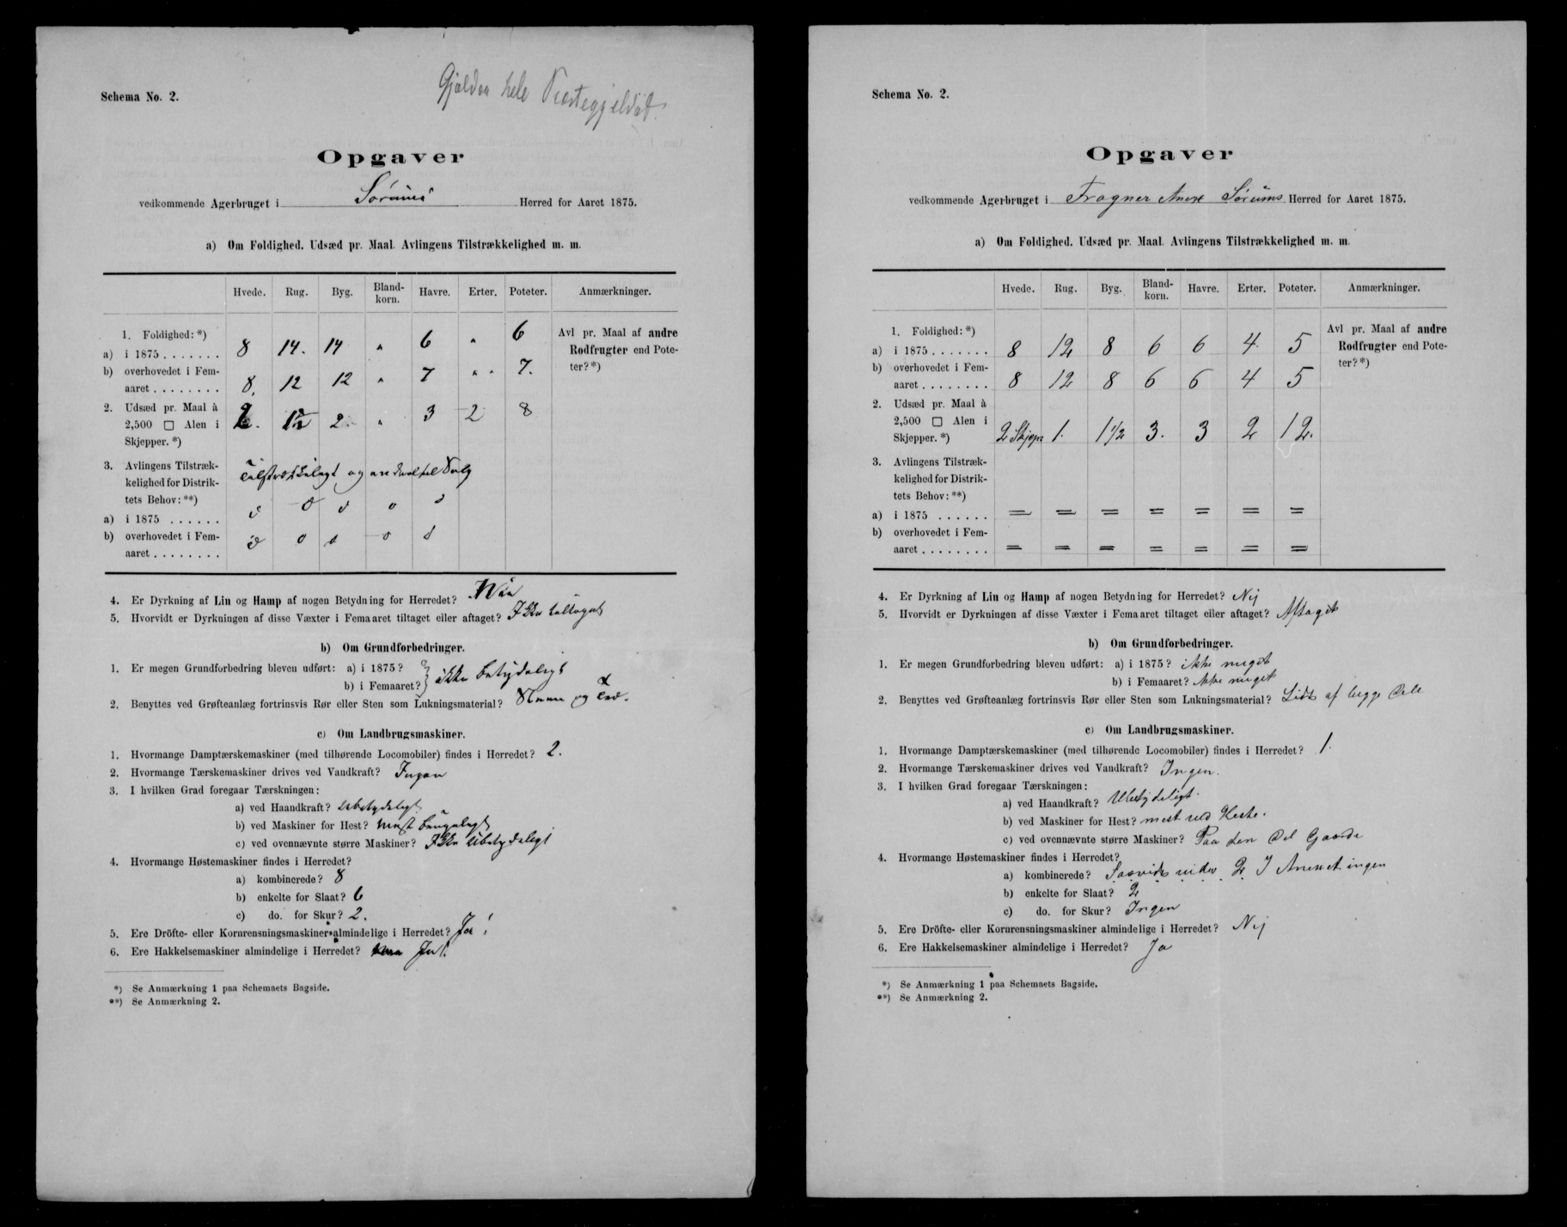 Schema No. 2.
Gjælder hele Præstegjeldet.
Opgaver
vedkommende Agerbruget i Sørums Herred for Aaret 1875.
a) Om Foldighed. Udsæd pr. Maal. Avlingens Tilstrækkelighed m. m.
Hvede. Rug. Byg. Bland-korn. Havre. Erter. Poteter. Anmærkninger.
1. Foldighed: *)
a) i 1875 . . . . . . . 8 14. 14 " 6 " 6
Avl pr. Maal af andre
Rodfrugter end Pote-
ter? *)
b) overhovedet i Fem-
aaret . . . . . . . . 8. 12 12 " 7 " " 7.
2. Udsæd pr. Maal à
2,500 □ Alen i
Skjepper. *) 2. 1½ 2 " 3 2 8
3. Avlingens Tilstræk-
kelighed for Distrik-
tets Behov: **)
Tilstrækkeligt og endeel til Salg
a) i 1875 . . . . . .
b) overhovedet i Fem-
aaret . . . . . . . .
4. Er Dyrkning af Lin og Hamp af nogen Betydning for Herredet? Nei
5. Hvorvidt er Dyrkningen af disse Væxter i Femaaret tiltaget eller aftaget? Ikke tiltaget
b) Om Grundforbedringer.
1. Er megen Grundforbedring bleven udført: a) i 1875?
b) i Femaaret? } ikke betydeligt
2. Benyttes ved Grøfteanlæg fortrinsvis Rør eller Sten som Lukningsmaterial? Steen og Træ.
c) Om Landbrugsmaskiner.
1. Hvormange Damptærskemaskiner (med tilhørende Locomobiler) findes i Herredet? 2.
2. Hvormange Tærskemaskiner drives ved Vandkraft? Ingen
3. I hvilken Grad foregaar Tærskningen:
a) ved Haandkraft? Ubetydeligt
b) ved Maskiner for Hest? mest brugeligt
c) ved ovennævnte større Maskiner? Ikke Ubetydeligt
4. Hvormange Høstemaskiner findes i Herredet?
a) kombinerede? 8
b) enkelte for Slaat? 6
c) do. for Skur? 2.
5. Ere Dröfte- eller Kornrensningsmaskiner almindelige i Herredet? Ja!
6. Ere Hakkelsemaskiner almindelige i Herredet? Ja!
*) Se Anmærkning 1 paa Schemaets Bagside.
**) Se Anmærkning 2.
Schema No. 2.
Opgaver
vedkommende Agerbruget i Frogner Anex Sørums Herred for Aaret 1875.
a) Om Foldighed. Udsæd pr. Maal. Avlingens Tilstrækkelighed m. m.
Hvede. Rug. Byg. Bland-korn. Havre. Erter. Poteter. Anmærkninger.
1. Foldighed: *)
a) i 1875 . . . . . . . 8 12 8 6 6 4 5
Avl pr. Maal af andre
Rodfrugter end Pote-
ter? *)
b) overhovedet i Fem-
aaret . . . . . . . . 8 12 8 6 6 4 5
2. Udsæd pr. Maal à
2,500 □ Alen i
Skjepper. *) 2 Skjepr 1. 1½ 3. 3 2 12.
3. Avlingens Tilstræk-
kelighed for Distrik-
tets Behov: **)
a) i 1875 . . . . . . = = = = = = =
b) overhovedet i Fem-
aaret . . . . . . . . = = = = = = =
4. Er Dyrkning af Lin og Hamp af nogen Betydning for Herredet? Nej
5. Hvorvidt er Dyrkningen af disse Væxter i Femaaret tiltaget eller aftaget? Aftaget
b) Om Grundforbedringer.
1. Er megen Grundforbedring bleven udført: a) i 1875? ikke meget
b) i Femaaret? ikke meget
2. Benyttes ved Grøfteanlæg fortrinsvis Rør eller Sten som Lukningsmaterial? Lidt af begge Dele
c) Om Landbrugsmaskiner.
1. Hvormange Damptærskemaskiner (med tilhørende Locomobiler) findes i Herredet? 1.
2. Hvormange Tærskemaskiner drives ved Vandkraft? Ingen.
3. I hvilken Grad foregaar Tærskningen:
a) ved Haandkraft? Ubetydeligt.
b) ved Maskiner for Hest? mest ved Heste.
c) ved ovennævnte større Maskiner? Paa den Del Gaarde
4. Hvormange Høstemaskiner findes i Herredet?
a) kombinerede? Saavidt vides 2. I Annexet ingen
b) enkelte for Slaat? 2
c) do. for Skur? Ingen
5. Ere Dröfte- eller Kornrensningsmaskiner almindelige i Herredet? Nej
6. Ere Hakkelsemaskiner almindelige i Herredet? Ja
*) Se Anmærkning 1 paa Schemaets Bagside.
**) Se Anmærkning 2.